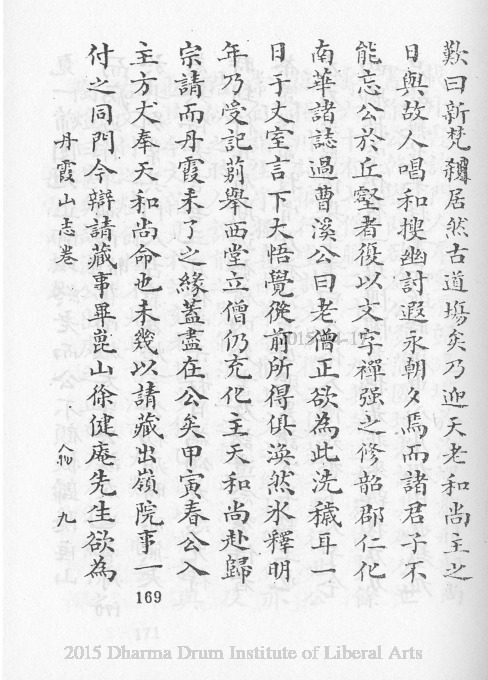 歎曰新梵剎居然古道場矣乃迎天老和尚主之
日與故人唱和搜幽討遐永朝夕焉而諸君子不
能忘公於丘壑者復以文字禪强之修韶郡仁化
南華諸誌過曹溪公曰老僧正欲為此洗穢耳一
日于丈室言下大悟覺從前所得俱渙然氷釋明
年乃受記莂舉西堂立僧仍充化主天和尚赴歸
宗請而丹霞未了之緣蓋盡在公矣甲寅春公入
主方丈奉天和尚命也未幾以請藏出嶺院事一
付之同門今辯請藏事畢崑山徐健庵先生欲為
丹霞山志卷 人物 九
169
2015 Dharma Drum Institute of Liberal Arts